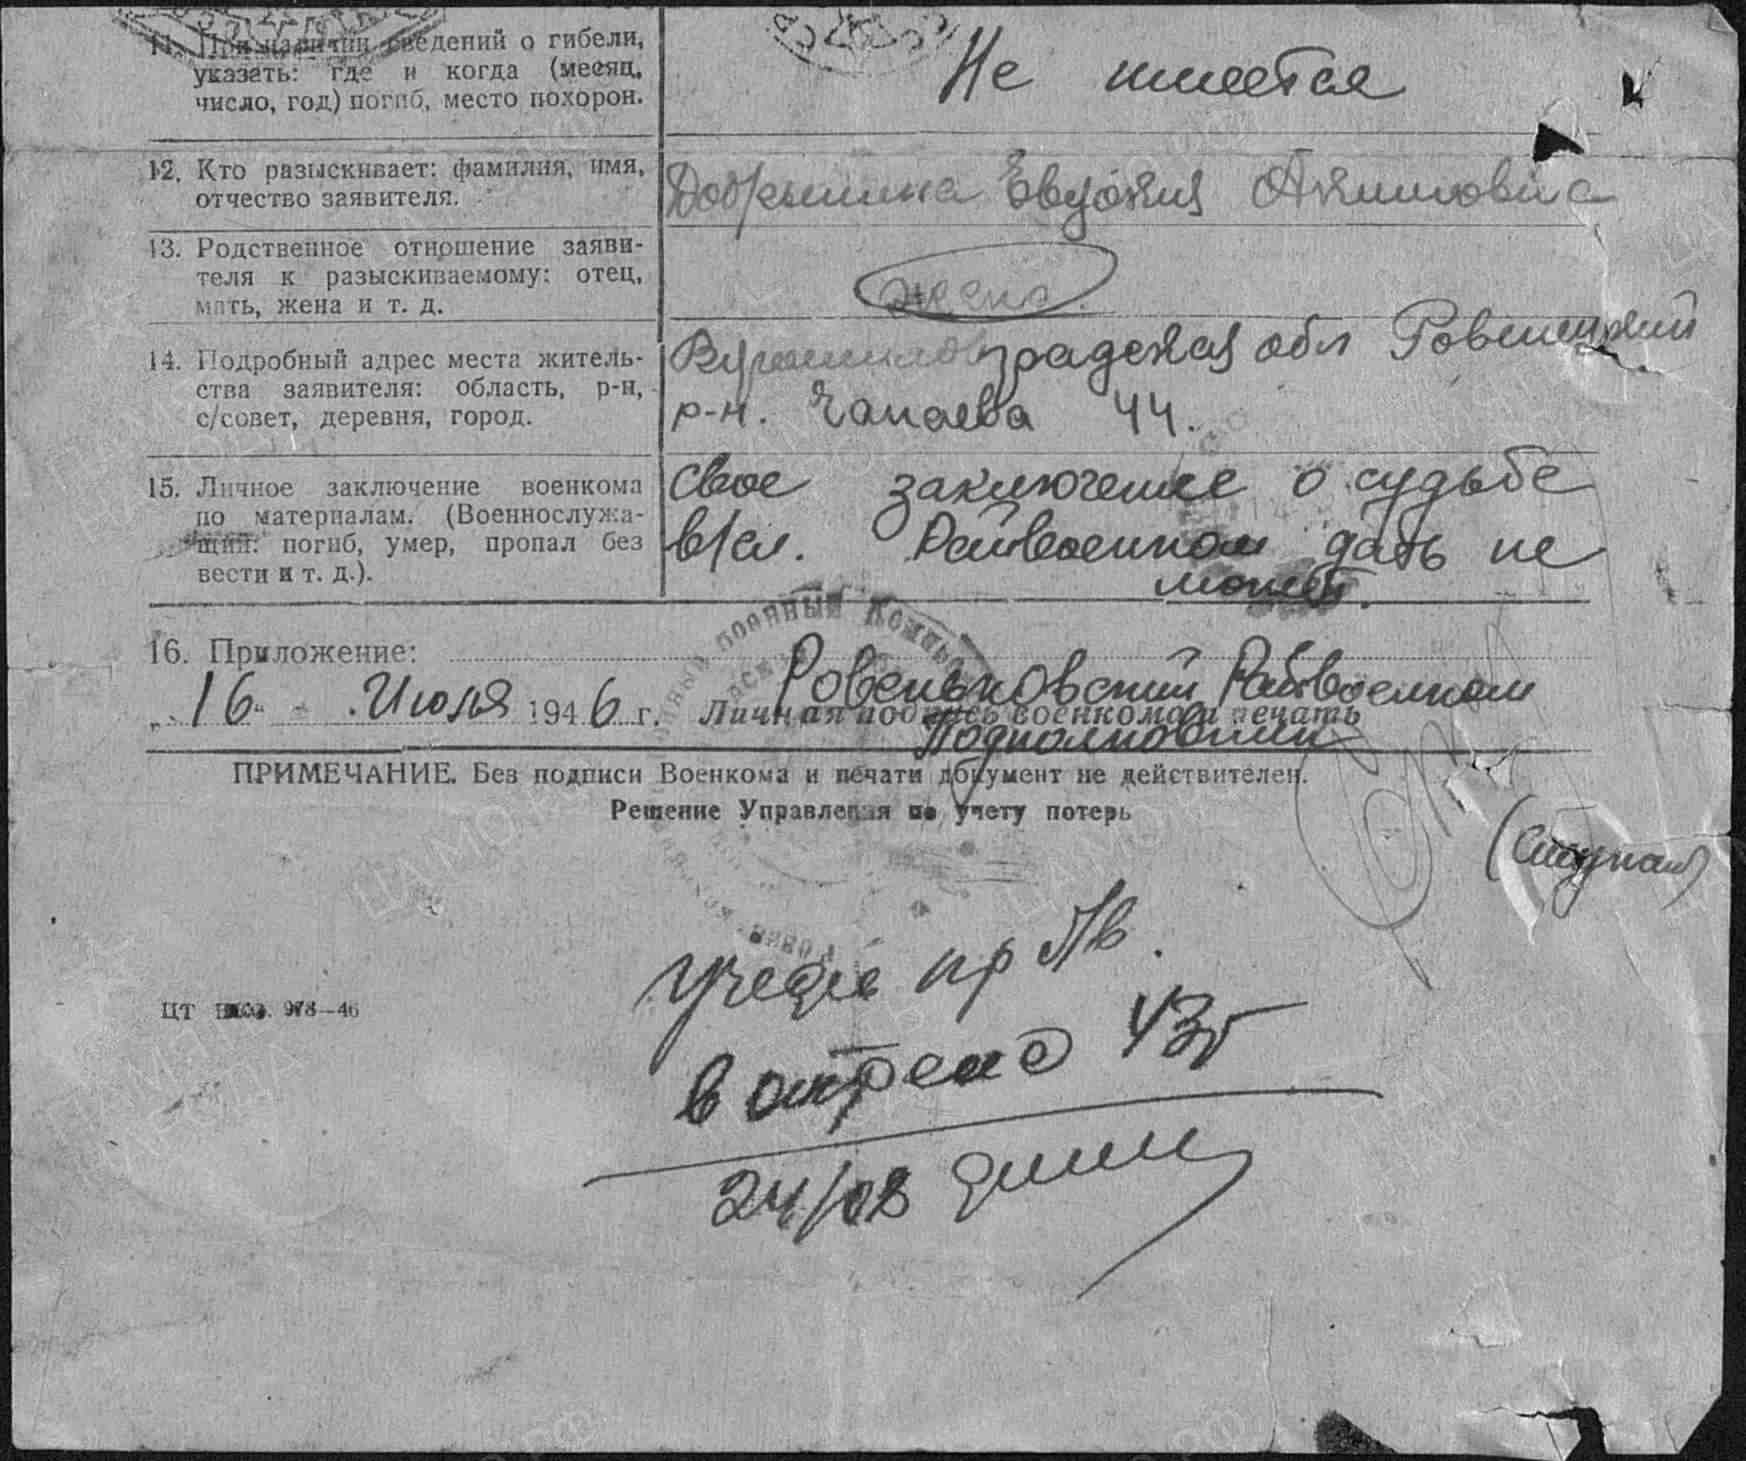 11. При наличии сведений о гибели,
указать: где и когда (месяц,
число, год) погиб, место похорон.
Не имеется
12. Кто разыскивает: фамилия, имя,
отчество заявителя.
Добрынина Евдокия Акимовна
13. Родственное отношение заяви-
теля к разыскиваемому: отец,
мать, жена и т. д.
жена.
14. Подробный адрес места житель-
ства заявителя: область, р-н,
с/совет, деревня, город.
Ворошиловградская обл
р-н. Чапаева 44.
15. Личное заключение военкома
по материалам. (Военнослужа-
щий: погиб, умер, пропал без
вести и т. д.).
Свое заключение о судьбе
в/сл. Райвоенком дать не
может.
16. Приложение:
Ровеньковский Райвоенком
16 Июля 1946 г. Личная подпись военкома и печать
Подполковник
ПРИМЕЧАНИЕ. Без подписи Военкома и печати документ не действителен.
Решение Управления по учету потерь
(Ступак)
пр
ЦТ 978—46
43г
24/